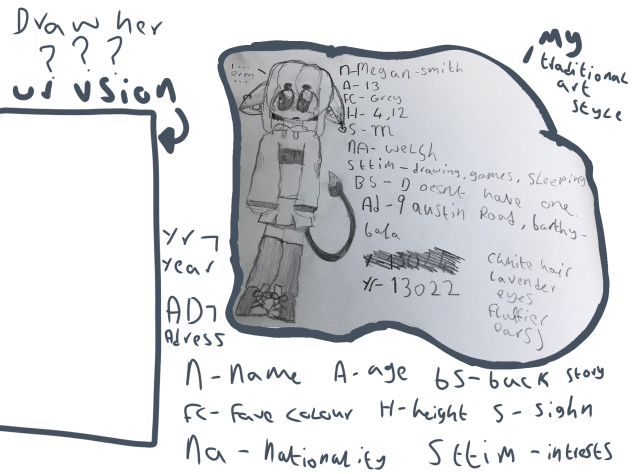 Draw her
? ? ?
ur vsion
My
traditional
art
style
I ...
orm...
...
n-Megan-smith
A-13
FC-Grey
H-4,12
S-m
NA-welsh
Sttim-drawing, games, sleeping
BS-Doesnt have one.
Ad-9 austin Road, barthy-
bala
yr-13022
(white hair
lavender
eyes
fluffier
ears)
yr
year
AD
Adress
n-name A-age bS-back story
FC-Fave colour H-height S-sighn
na-nationality Sttim-intrests